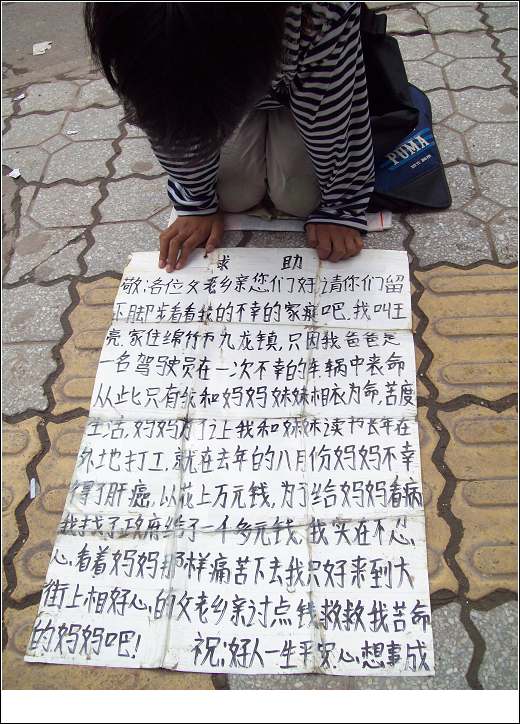 PUMA
求 助
敬:各位父老乡亲您们好,请你们留
下脚步看看我的不幸的家庭吧.我叫王
亮,家住绵竹市九龙镇,只因我爸爸是
一名驾驶员在一次不幸的车祸中丧命
从此只有我和妈妈妹妹相依为命,苦度
生活,妈妈为了让我和妹妹读书长年在
外地打工,就在去年的八月份妈妈不幸
得了肝癌,以花上万元钱,为了给妈妈看病
我找了政府给了一个多元钱,我实在不忍
心,看着妈妈那样痛苦下去我只好来到大
街上相好心,的父老乡亲讨点钱救救我苦命
的妈妈吧! 祝,好人一生平安心,想事成